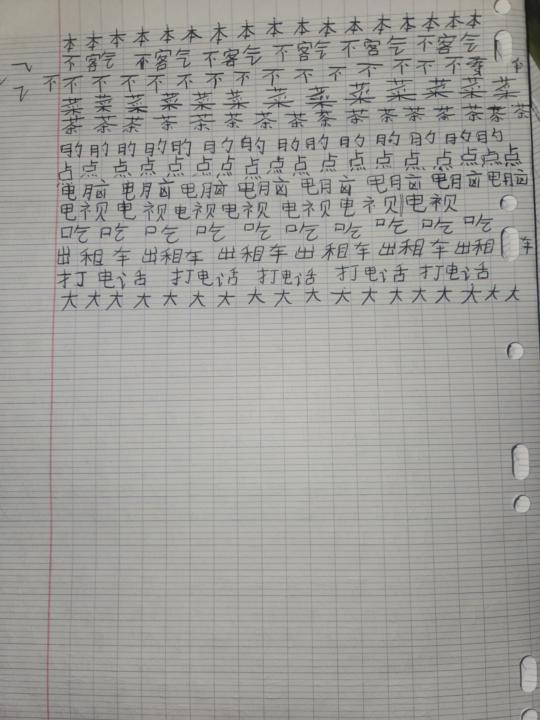 本本本本本本本本本本本本本本本本本
不客气 不客气 不客气 不客气 不客气 不客气
不不不不不不不不不不不不不不不不
菜菜菜菜菜菜菜菜菜菜菜菜菜
茶茶茶茶茶茶茶茶茶茶茶茶茶茶茶茶茶
的的的的的的的的的的的的的的的
点点点点点点点点点点点点点点点点点点
电脑 电脑 电脑 电脑 电脑 电脑 电脑 电脑
电视 电视 电视 电视 电视 电视 电视
吃 吃 吃 吃 吃 吃 吃 吃 吃 吃 吃
出租车 出租车 出租车 出租车 出租车 出租车
打电话 打电话 打电话 打电话 打电话
大大大大大大大大大大大大大大大大大大